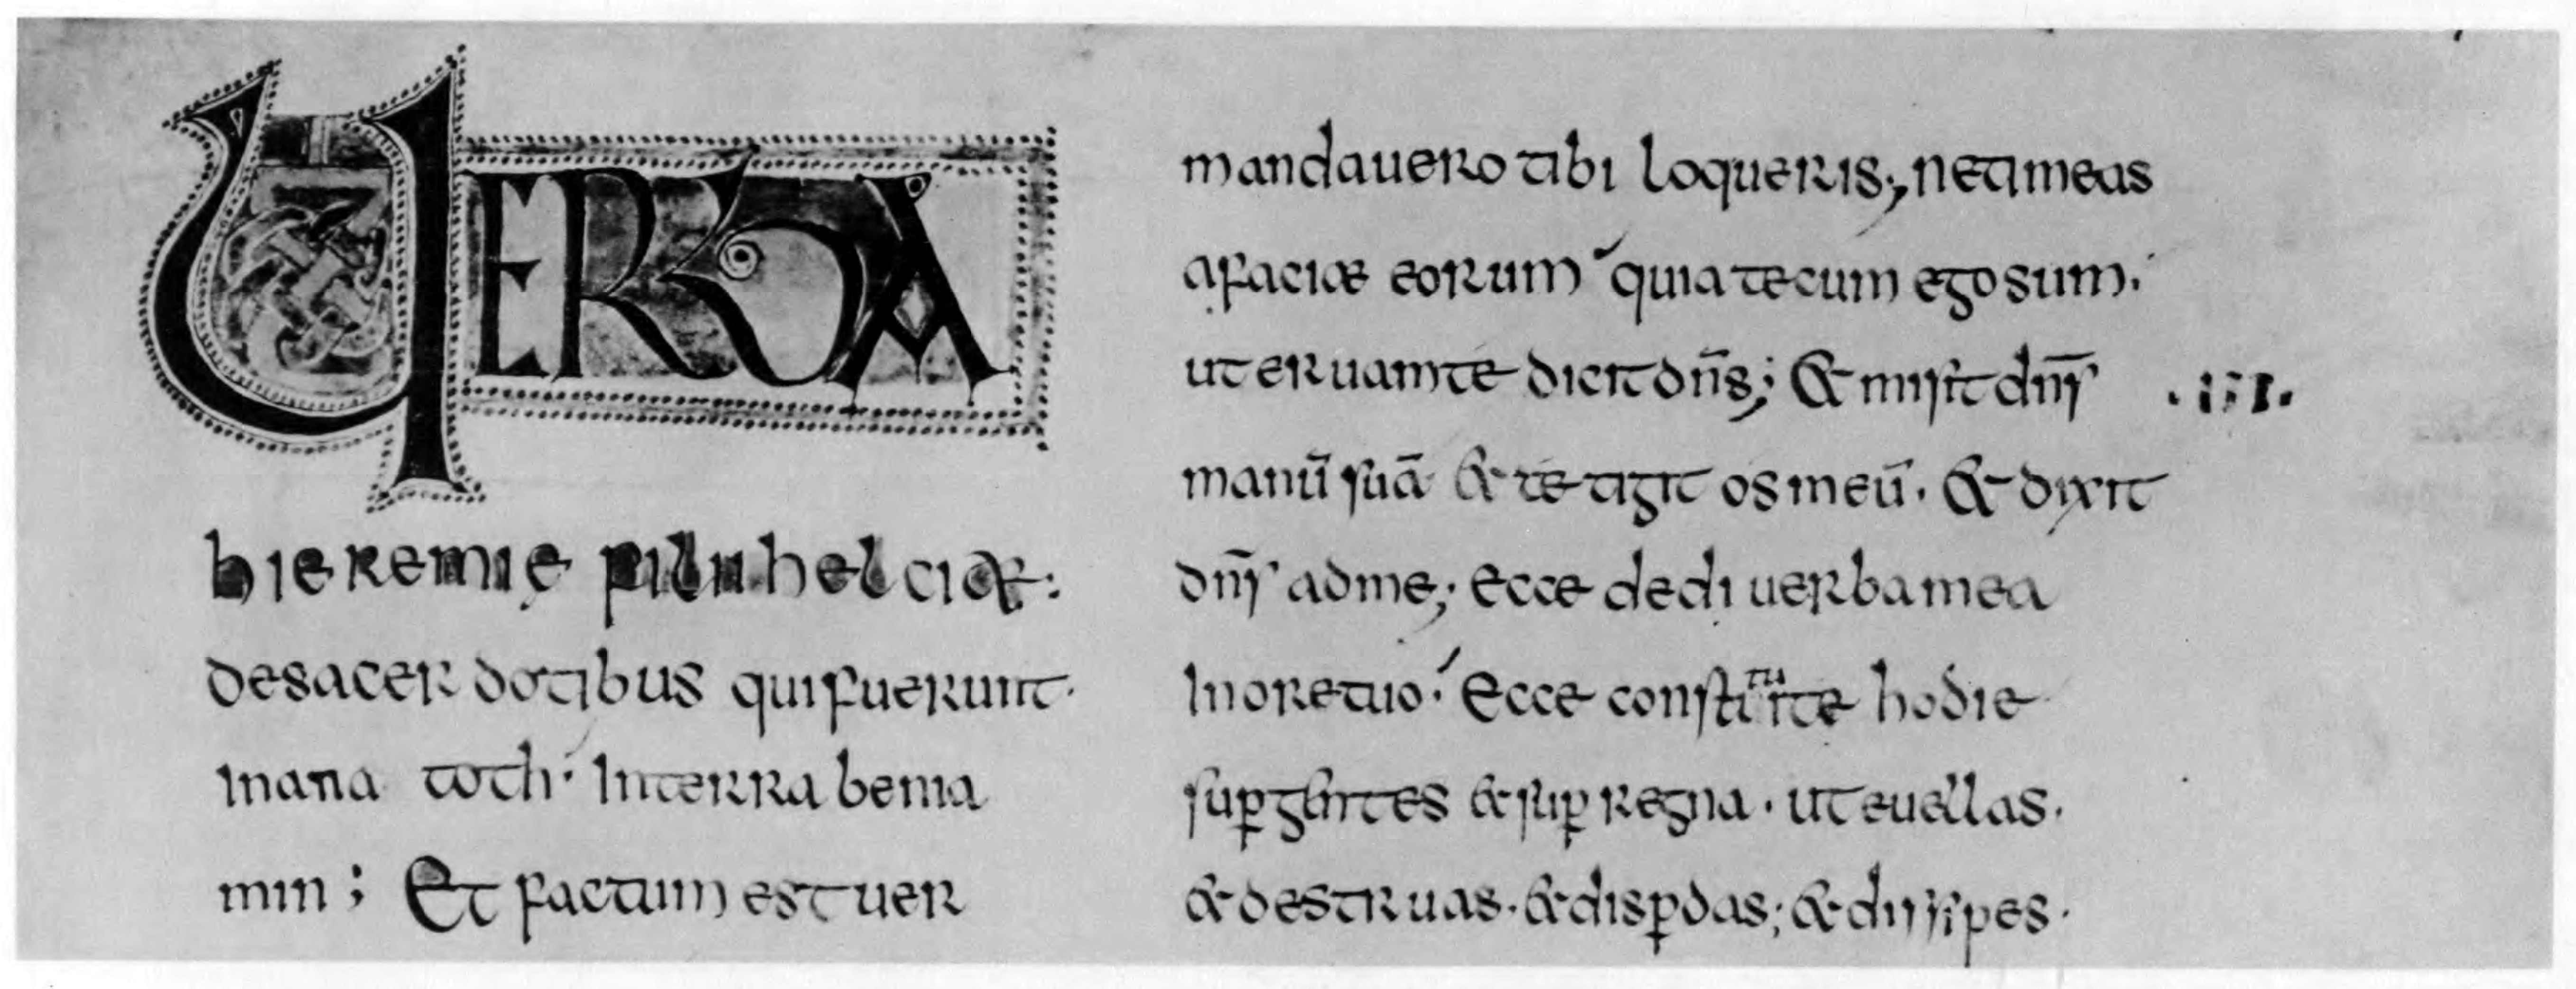 UERBA
hieremię filii helciae:
desacerdotibus quifuerunt.
Inana toth. Interra benia
min; Et factum est uer
mandauero tibi loqueris; netimeas
afaciae eorum quia tecum ego sum.
ut eruamte dicit dñs; & missit dñs
.iii.
manū suā & tetigit os meū. & dixit
dñs adme; ecce dedi uerba mea
Inore tuo. Ecce constituite hodie
suꝑ gentes & suꝑ regna. ut euellas.
& destruas. & disꝑdas; & dissipes.